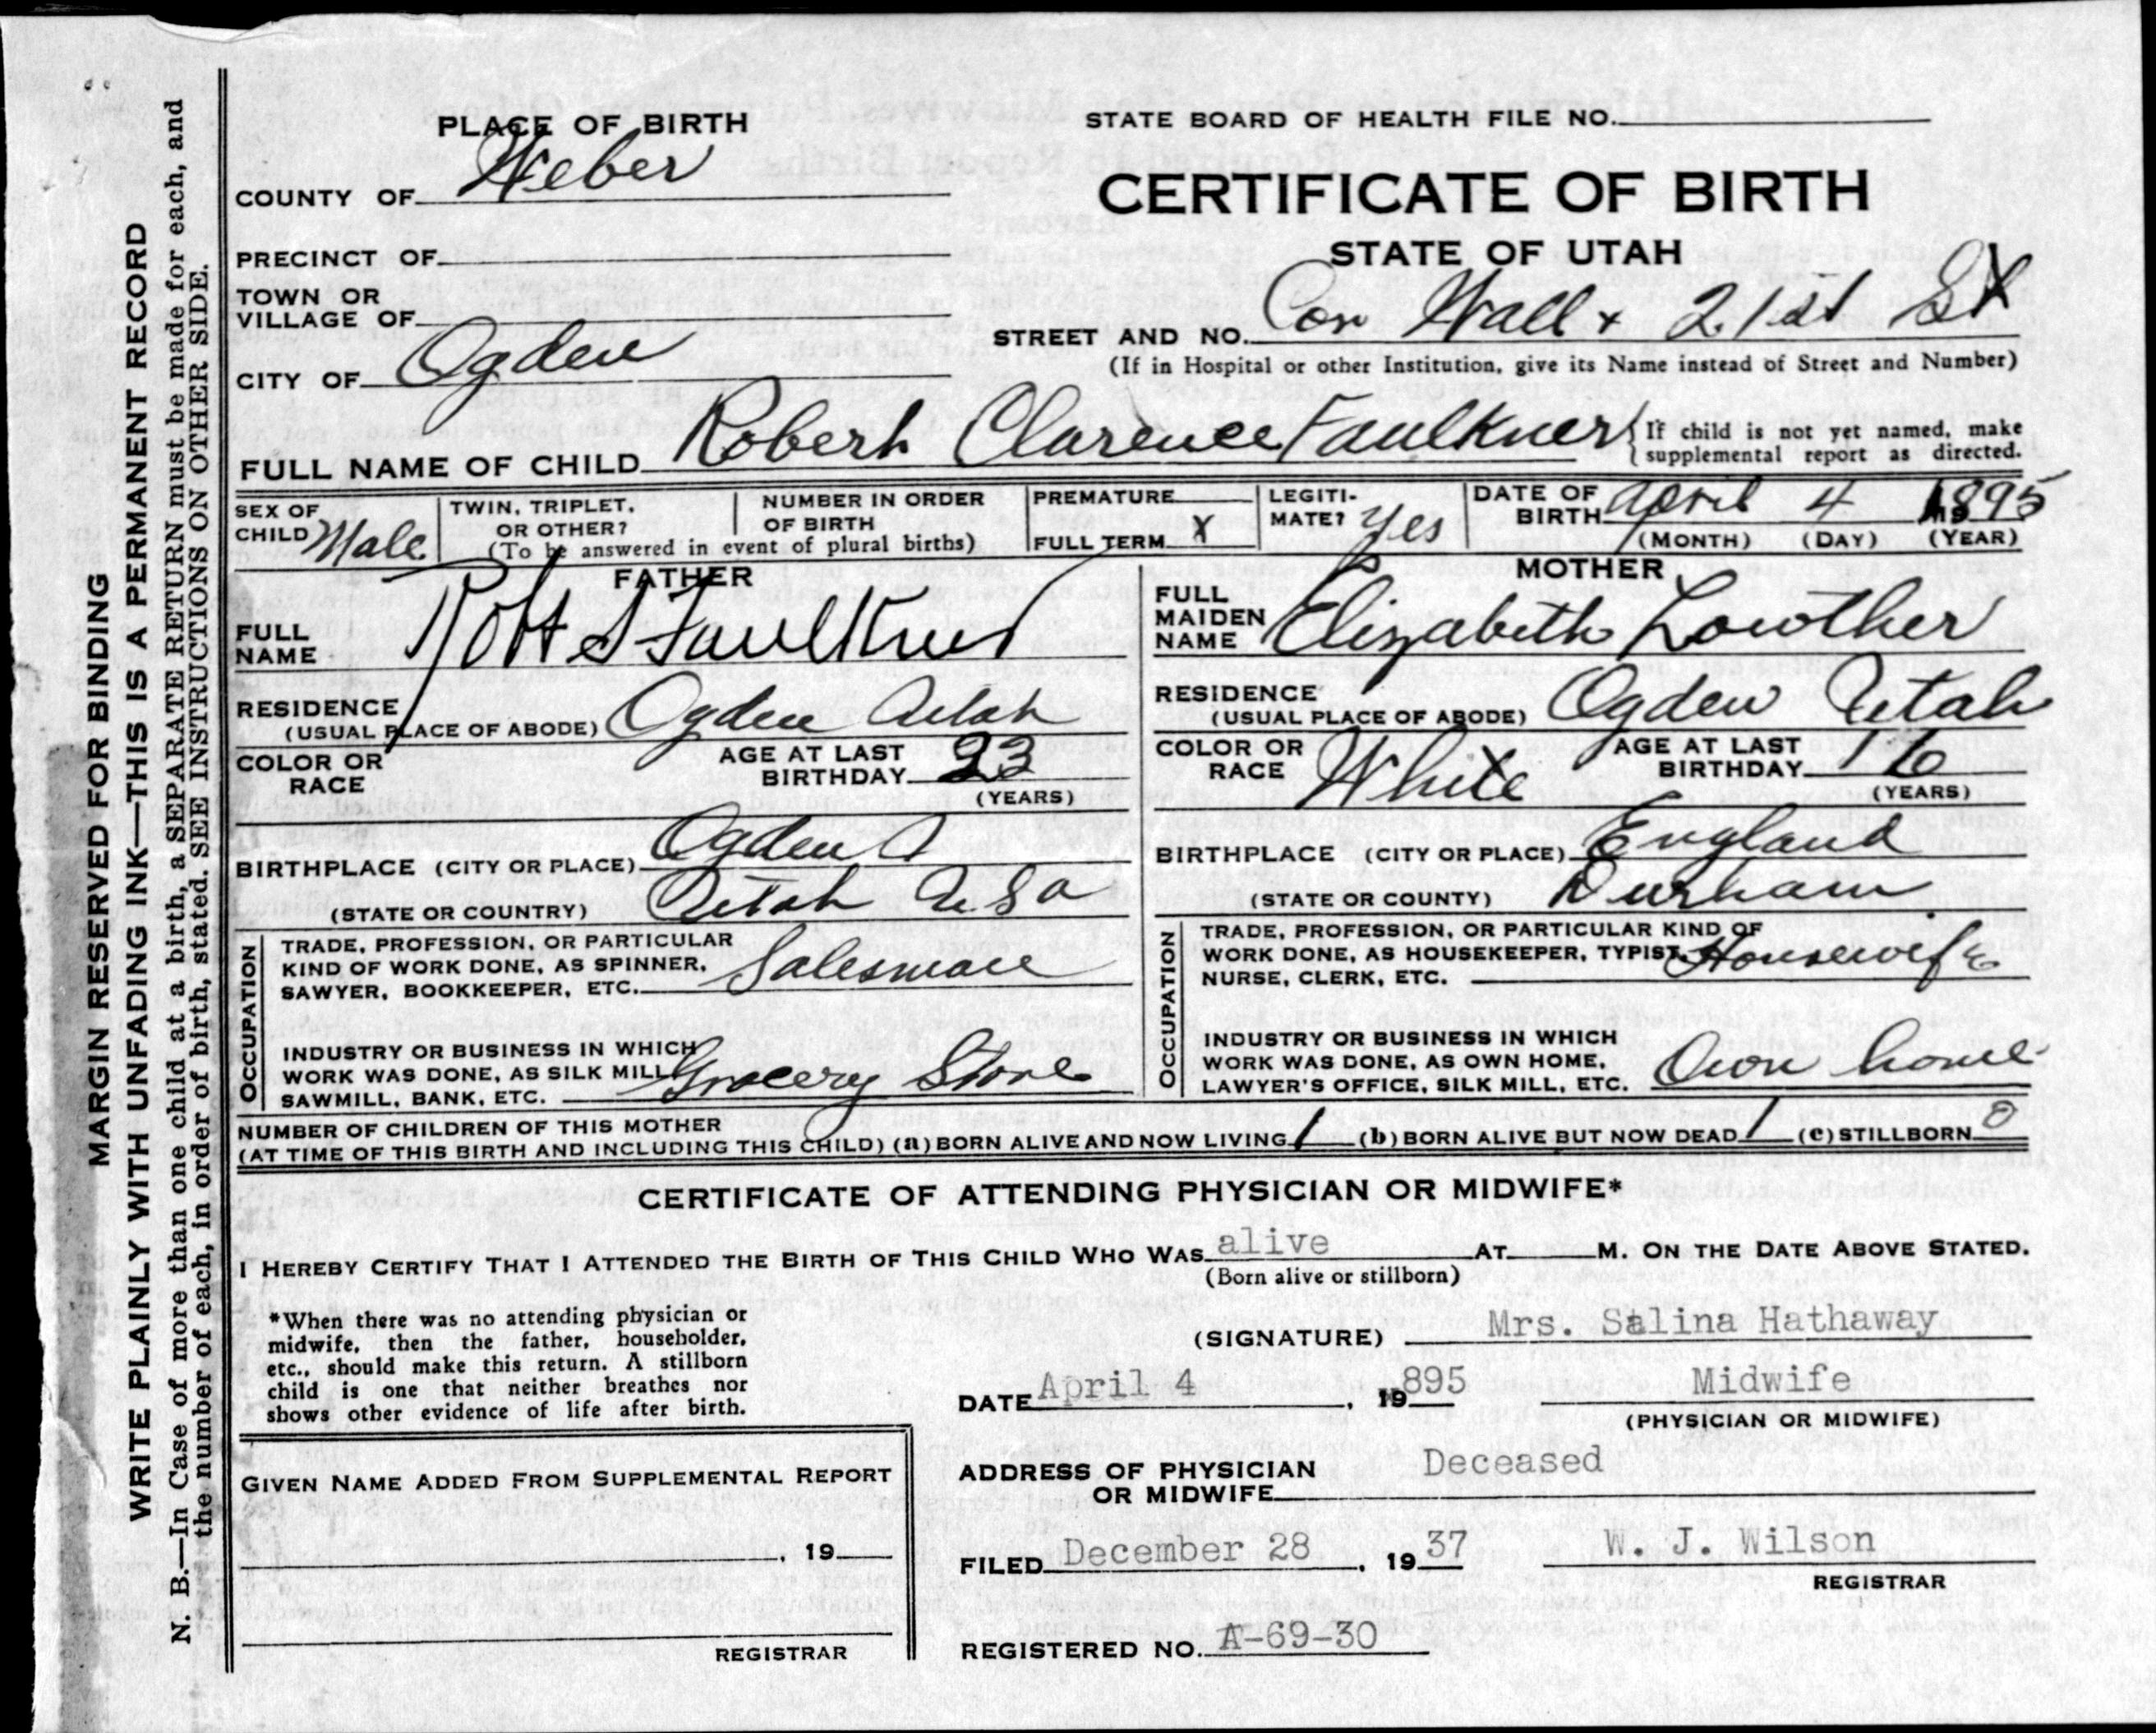 MARGIN RESERVED FOR BINDING
WRITE PLAINLY WITH UNFADING INK—THIS IS A PERMANENT RECORD
N. B.—In Case of more than one child at a birth, a SEPARATE RETURN must be made for each, and
the number of each, in order of birth, stated. SEE INSTRUCTIONS ON OTHER SIDE.
PLACE OF BIRTH
COUNTY OF Weber
PRECINCT OF
TOWN OR
VILLAGE OF
CITY OF Ogden
STATE BOARD OF HEALTH FILE NO.
CERTIFICATE OF BIRTH
STATE OF UTAH
STREET AND NO. Cor Wall + 21st St
(If in Hospital or other Institution, give its Name instead of Street and Number)
FULL NAME OF CHILD Robert Clarence Faulkner
If child is not yet named, make
supplemental report as directed.
SEX OF
CHILD Male
TWIN, TRIPLET,
OR OTHER?
NUMBER IN ORDER
OF BIRTH
(To be answered in event of plural births)
PREMATURE
FULL TERM X
LEGITI-
MATE? Yes
DATE OF
BIRTH April 4 1895
(MONTH) (DAY) (YEAR)
FATHER
FULL
NAME Robt S Faulkner
RESIDENCE
(USUAL PLACE OF ABODE) Ogden Utah
COLOR OR
RACE
AGE AT LAST
BIRTHDAY 23
(YEARS)
BIRTHPLACE (CITY OR PLACE) Ogden
(STATE OR COUNTRY) Utah U.S.a
OCCUPATION
TRADE, PROFESSION, OR PARTICULAR
KIND OF WORK DONE, AS SPINNER,
SAWYER, BOOKKEEPER, ETC. Salesman
INDUSTRY OR BUSINESS IN WHICH
WORK WAS DONE, AS SILK MILL,
SAWMILL, BANK, ETC. Grocery Store
MOTHER
FULL
MAIDEN
NAME Elizabeth Lowther
RESIDENCE
(USUAL PLACE OF ABODE) Ogden Utah
COLOR OR
RACE White
AGE AT LAST
BIRTHDAY 16
(YEARS)
BIRTHPLACE (CITY OR PLACE) England
(STATE OR COUNTY) Durham
OCCUPATION
TRADE, PROFESSION, OR PARTICULAR KIND OF
WORK DONE, AS HOUSEKEEPER, TYPIST,
NURSE, CLERK, ETC. Housewife
INDUSTRY OR BUSINESS IN WHICH
WORK WAS DONE, AS OWN HOME,
LAWYER'S OFFICE, SILK MILL, ETC. Own home
NUMBER OF CHILDREN OF THIS MOTHER
(AT TIME OF THIS BIRTH AND INCLUDING THIS CHILD) (a) BORN ALIVE AND NOW LIVING 1 (b) BORN ALIVE BUT NOW DEAD 1 (c) STILLBORN 0
CERTIFICATE OF ATTENDING PHYSICIAN OR MIDWIFE*
I HEREBY CERTIFY THAT I ATTENDED THE BIRTH OF THIS CHILD WHO WAS alive AT M. ON THE DATE ABOVE STATED.
(Born alive or stillborn)
*When there was no attending physician or
midwife, then the father, householder,
etc., should make this return. A stillborn
child is one that neither breathes nor
shows other evidence of life after birth.
(SIGNATURE) Mrs. Salina Hathaway
DATE April 4, 1895 Midwife
(PHYSICIAN OR MIDWIFE)
ADDRESS OF PHYSICIAN
OR MIDWIFE Deceased
FILED December 28, 1937 W. J. Wilson
REGISTRAR
REGISTERED NO. A-69-30
GIVEN NAME ADDED FROM SUPPLEMENTAL REPORT
, 19
REGISTRAR